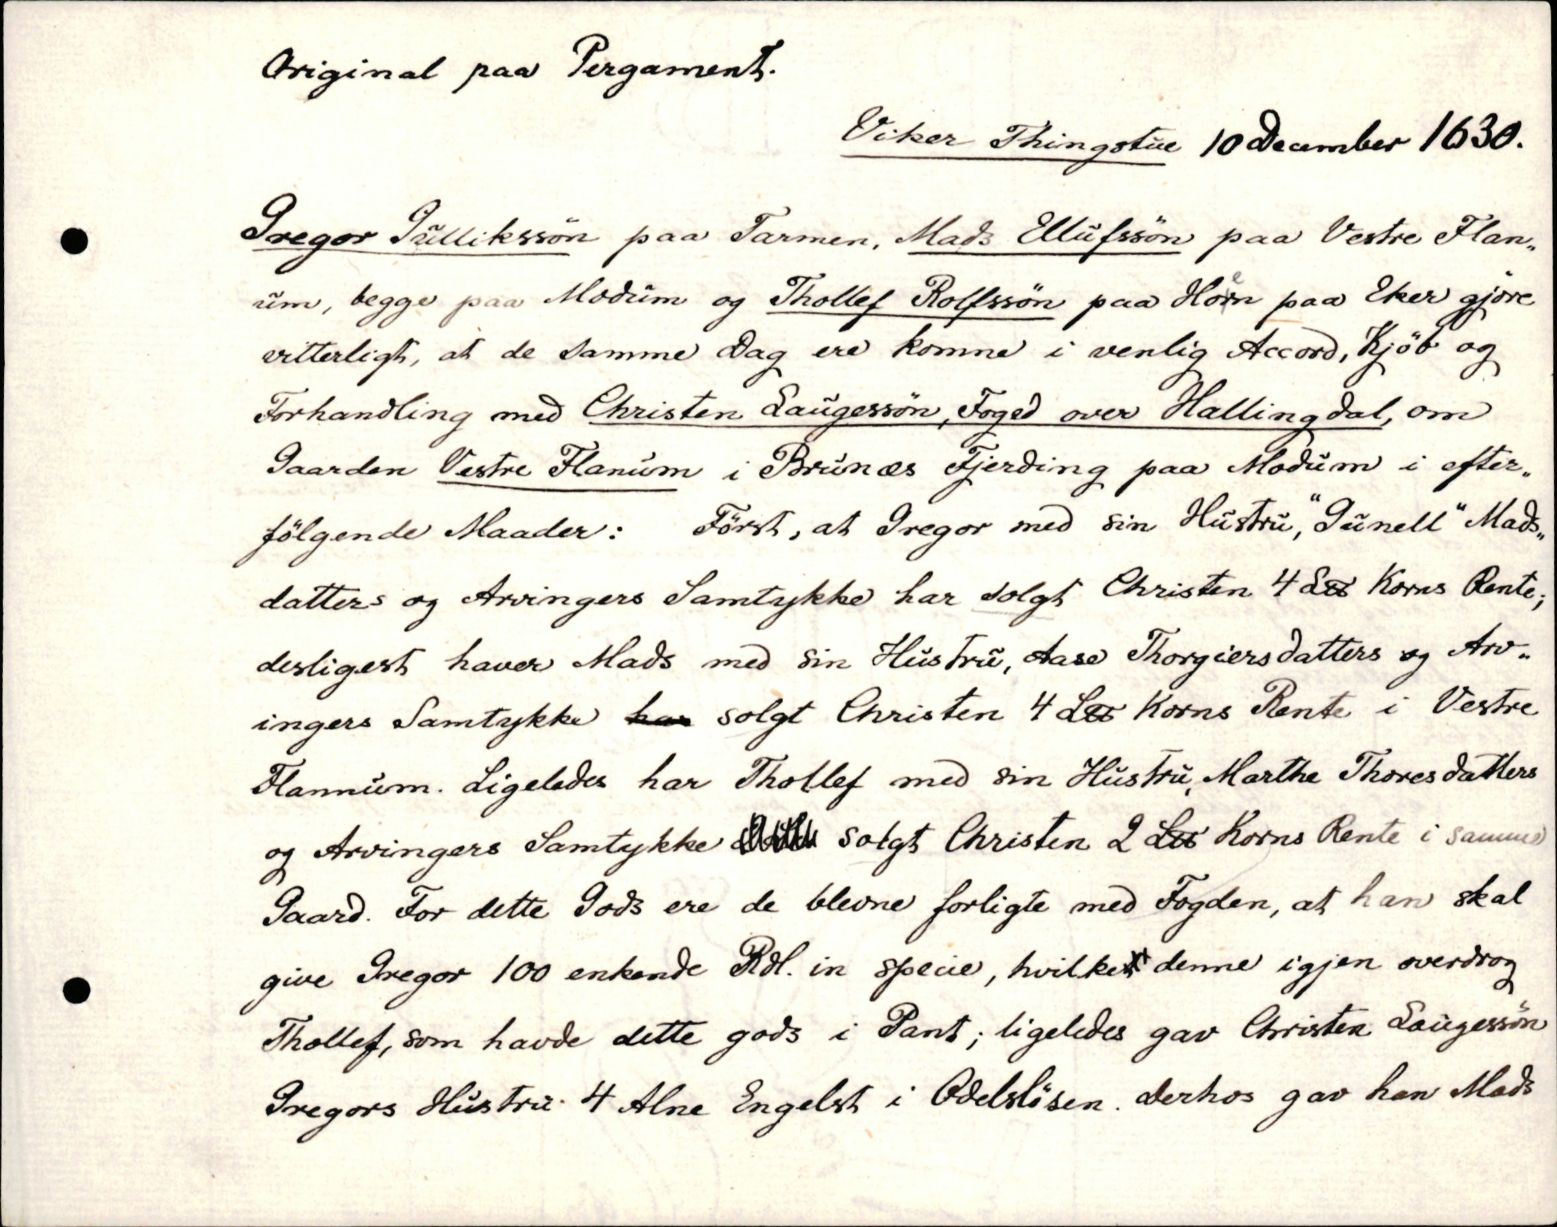 Original paa Pergament.
Viker Thingstue 10 December 1630.
Gregor Gullikssön paa Tarmen, Mads Ellufssön paa Vestre Flan-
um, begge paa Modum og Thollef Rolfssön paa Horn paa Eker gjöre
vitterligt, at de samme Dag ere komne i venlig Accord, Kjöb og
Forhandling med Christen Laugessön, Foged over Hallingdal, om
Gaarden Vestre Flanum i Brunæs Fjerding paa Modum i efter-
fölgende Maader: Först, at Gregor med sin Hustru, "Gunell" Mads-
datters og Arvingers Samtykke har solgt Christen 4 Korns Rente;
desligest haver Mads med sin Hustru, Aase Thorgiersdatters og Arv-
ingers Samtykke har solgt Christen 4 Korns Rente i Vestre
Flannum. Ligeledes har Thollef med sin Hustru, Marthe Thoresdatters
og Arvingers Samtykke solgt Christen 2 Korns Rente i samme
Gaard. For dette Gods ere de blevne forligte med Fogden, at han skal
give Gregor 100 enkende Rdl. in specie, hvilket denne igjen overdrog
Thollef, som havde dette gods i Pant; ligeledes gav Christen Laugessön
Gregors Hustru 4 Alne Engelst i Odelslösen. Derhos gav han Mads